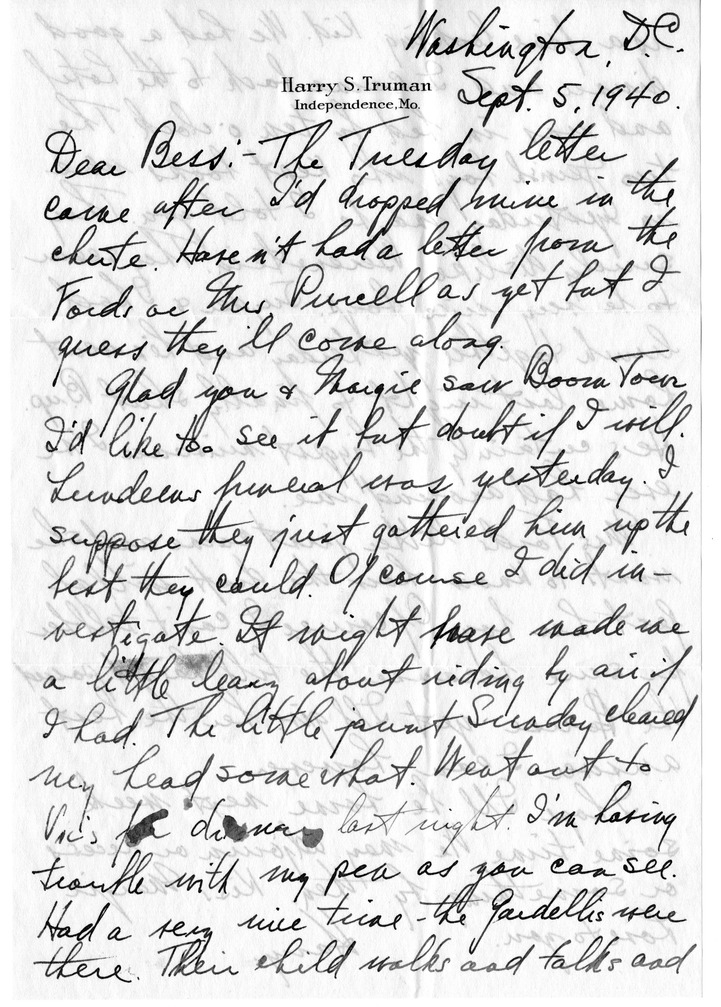 Washington, D.C.
Harry S. Truman
Independence, Mo.
Sept. 5, 1940.
Dear Bess:- The Tuesday letter
came after I'd dropped mine in the
chute. Haven't had a letter from the
Fords or Mrs Purcell as yet but I
guess they'll come along.
Glad you & Margie saw Boom Town
I'd like to see it but doubt if I will.
Lundeens funeral was yesterday. I
suppose they just gathered him up the
best they could. Of course I did in-
vestigate. It might have made me
a little leary about riding by air if
I had. The little jaunt Sunday cleared
my head somewhat. Went out to
Vic's for dinner last night. I'm having
trouble with my pen as you can see.
Had a very nice time - the Gardellis were
there. Their child walks and talks and